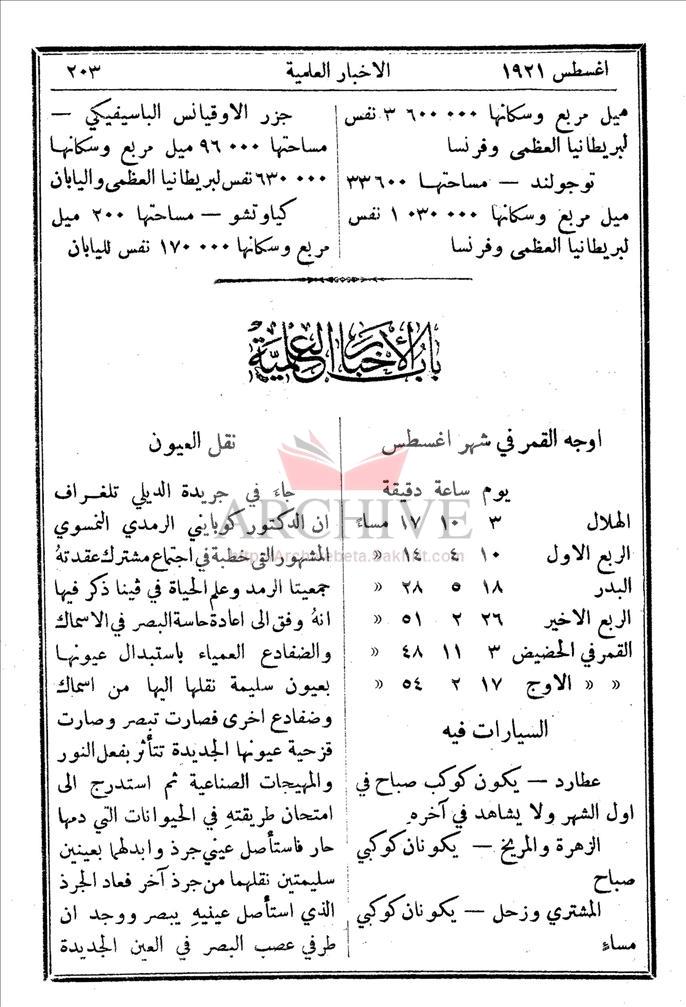 اغسطس ١٩٢١ الاخبار العلمية ٢٠٣
ميل مربع وسكانها ٣٦٠٠٠٠٠ نفس
لبريطانيا العظمى وفرنسا
توجولند — مساحتها ٣٣٦٠٠
ميل مربع وسكانها ١٠٣٠٠٠٠ نفس
لبريطانيا العظمى وفرنسا
جزر الاوقيانس الباسيفيكي —
مساحتها ٩٦٠٠٠ ميل مربع وسكانها
٦٣٠٠٠٠ نفس لبريطانيا العظمى واليابان
كياوتشو — مساحتها ٢٠٠ ميل
مربع وسكانها ١٧٠٠٠٠ نفس لليابان
باب الأخبار العلمية
اوجه القمر في شهر اغسطس
يوم ساعة دقيقة
الهلال ٣ ١٠ ١٧ مساء
الربع الاول ١٠ ٤ ١٤ »
البدر ١٨ ٥ ٢٨ »
الربع الاخير ٢٦ ٢ ٥١ »
القمر في الحضيض ٣ ١١ ٤٨ »
» » الاوج ١٧ ٢ ٥٤ »
السيارات فيه
عطارد — يكون كوكب صباح في
اول الشهر ولا يشاهد في آخره
الزهرة والمريخ — يكونان كوكبي
صباح
المشتري وزحل — يكونان كوكبي
مساء
نقل العيون
جاء في جريدة الديلي تلغراف
ان الدكتور كوپاينې الرمدي النمسوي
المشهور التى خطبة في اجتماع مشترك عقدتهُ
جمعيتا الرمد وعلم الحياة في ڤينا ذكر فيها
انهُ وفق الى اعادة حاسة البصر في الاسماك
والضفادع العمياء باستبدال عيونها
بعيون سليمة نقلها اليها من اسماك
وضفادع اخرى فصارت تبصر وصارت
قزحية عيونها الجديدة تتأثر بفعل النور
والمهيجات الصناعية ثم استدرج الى
امتحان طريقتهِ في الحيوانات التي دمها
حار فاستأصل عيني جرذ وابدلهما بعينين
سليمتين نقلهما من جرذ آخر فعاد الجرذ
الذي استأصل عينيهِ يبصر ووجد ان
طرفي عصب البصر في العين الجديدة
ARCHIVE